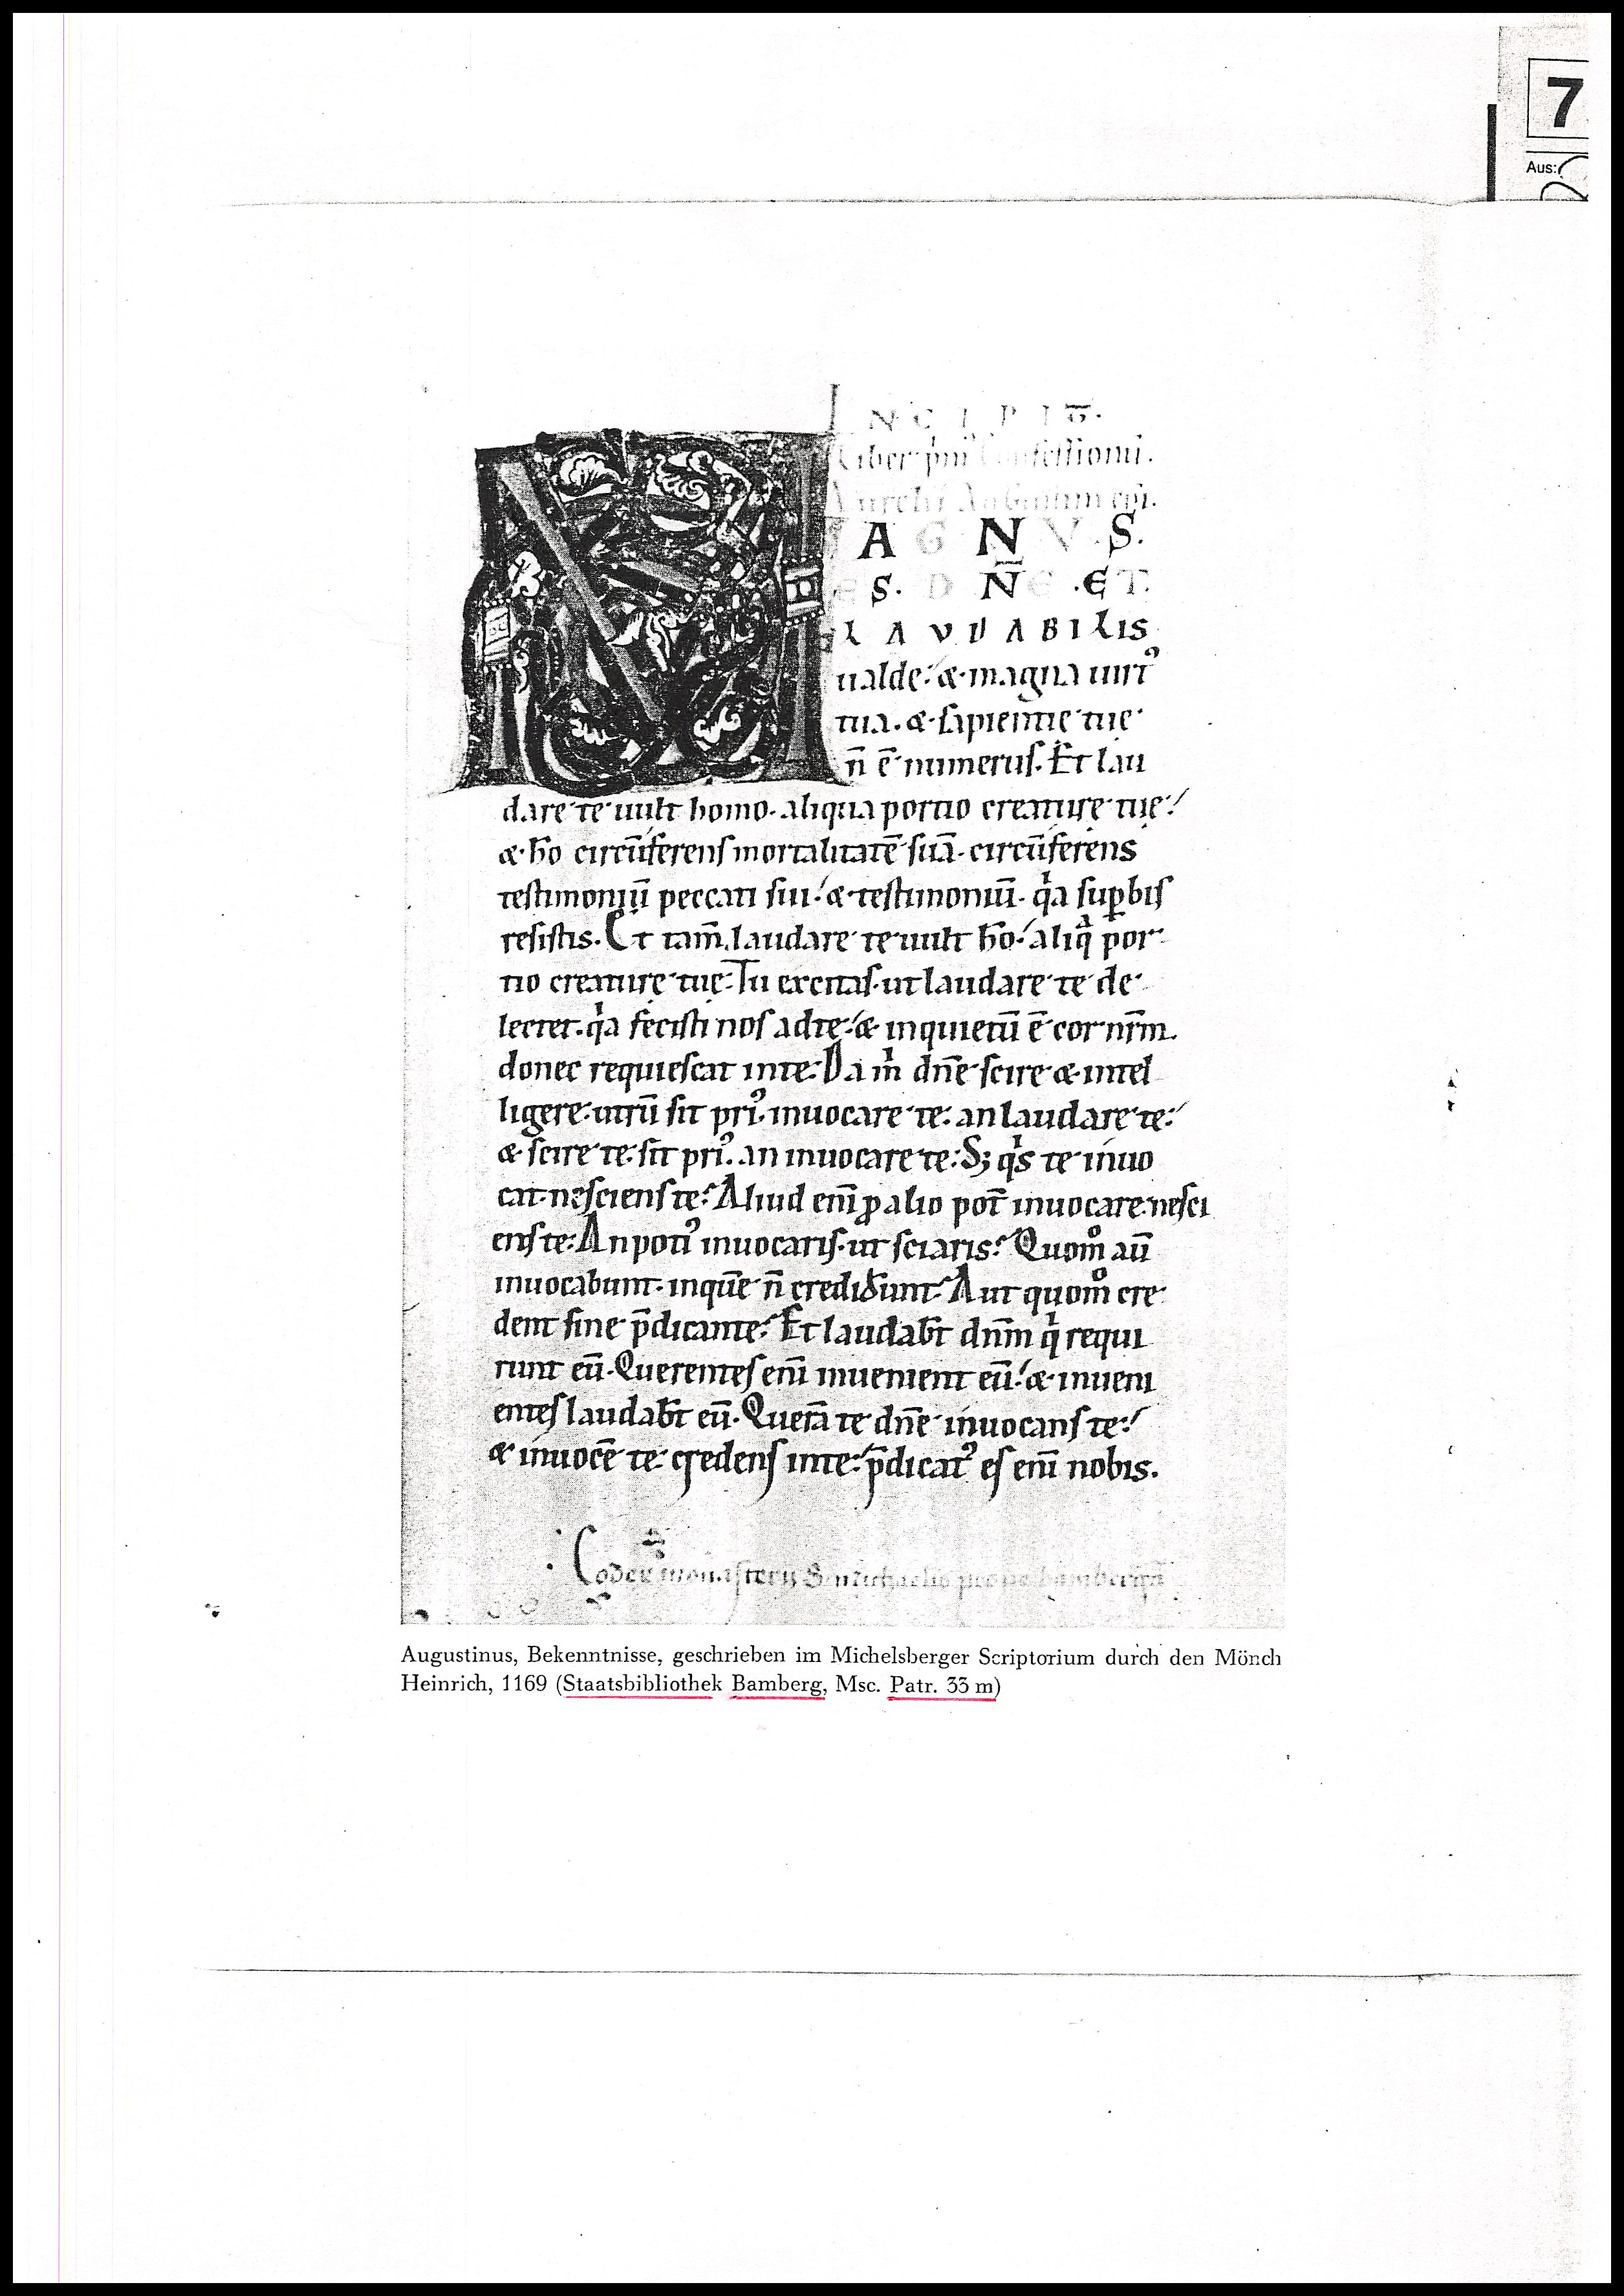 7
Aus:
INCIPIT̅.
Liber pm̅i Confessionū.
Aurelii Augustini ep̅i.
MAGNVS.
ES. DN̅E .ET.
LAVDABILIS
ualde: & magna uirt᾽
tua. & sapientię tuę
n̅ ē numerus. Et lau
dare te uult homo. aliqua portio creaturę tuę:
& ho̅ circu̅ferens mortalitatē suā. circu̅ferens
testimoniū peccati sui: & testimoniū. qͥa sup̱bis
resistis. Et tam̅ laudare te uult ho̅: aliqͣ por
tio creaturę tuę. Tu excitas. ut laudare te de
lectet. qͥa fecisti nos ad te: & inquietū ē cor nr̅m.
donec requiescat in te. Da m̅ dn̅e scire & intel
ligere. utrū sit pri᾽ inuocare te. an laudare te:
& scire te sit pri᾽. an inuocare te. Sꝫ qͥs te inuo
cat nesciens te? Aliud eni̅ ꝓ alio pot̅ inuocare nesci
ens te. An poti᾽ inuocaris. ut sciaris? Quom̊ au̅
inuocabunt. in que̅ n̅ credider̅unt? Aut quom̊ cre
dent sine p̅dicante? Et laudab̅t dn̅m qͥ requi
runt eū. Querentes eni̅ inuenient eū: & inueni
entes laudab̅t eū. Querā te dn̅e inuocans te:
& inuocē te credens in te. p̅dicat᾽ es eni̅ nobis.
Codex monasterij S. Michaelis prope bambergā
Augustinus, Bekenntnisse, geschrieben im Michelsberger Scriptorium durch den Mönch
Heinrich, 1169 (Staatsbibliothek Bamberg, Msc. Patr. 33 m)